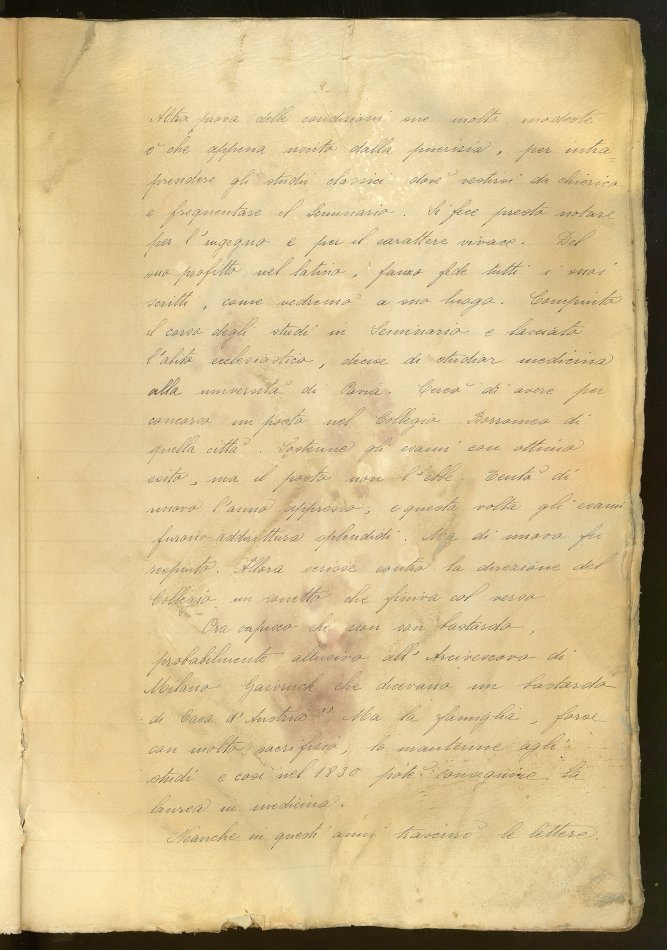 Altra prova delle condizioni sue molto modeste
è che appena uscito dalla puerizia, per intra-
prendere gli studii classici dovè vestirsi da chierico
e frequentare il Seminario. Si fece presto notare
per l'ingegno e per il carattere vivace. Del
suo profitto nel latino, fanno fede tutti i suoi
scritti, come vedremo a suo luogo. Compiuto
il corso degli studi in Seminario e lasciato
l'abito ecclesiastico, decise di studiar medicina
alla università di Pavia. Cercò di avere per
concorso un posto nel Collegio Borromeo di
quella città. Sostenne gli esami con ottimo
esito, ma il posto non l'ebbe. Tentò di
nuovo l'anno appresso, e questa volta gli esami
furono addirittura splendidi. Ma di nuovo fu
respinto. Allora scrisse contro la direzione del
Collegio un sonetto che finiva col verso
Ora capisco che non son bastardo,
probabilmente allusivo all'Arcivescovo di
Milano Gaisruck che dicevano un bastardo
di Casa d'Austria" Ma la famiglia, forse
con molto sacrifizio, lo mantenne agli
studi e così nel 1830 potè conseguire la
laurea in medicina.
Neanche in questi anni trascurò le lettere.